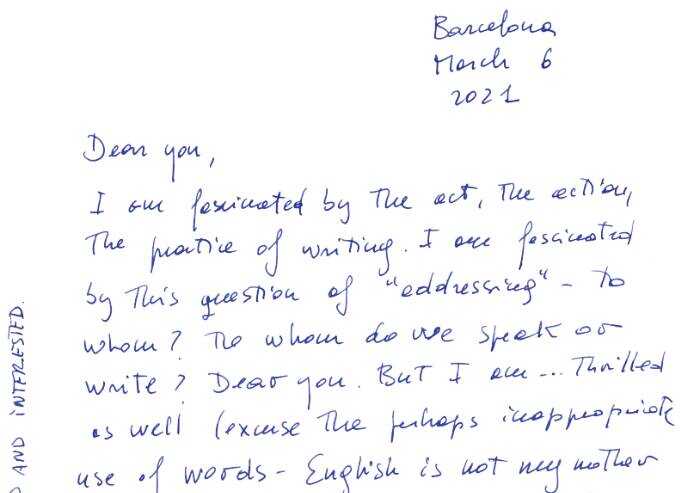 Barcelona
March 6
2021
Dear you,
I am fascinated by the act, the action,
The practice of writing. I am fascinated
by this question of "addressing" - to
whom? To whom do we speak or
write? Dear you. But I am... Thrilled
as well (excuse the perhaps inappropriate
use of words - English is not my mother
AND INTERESTED.